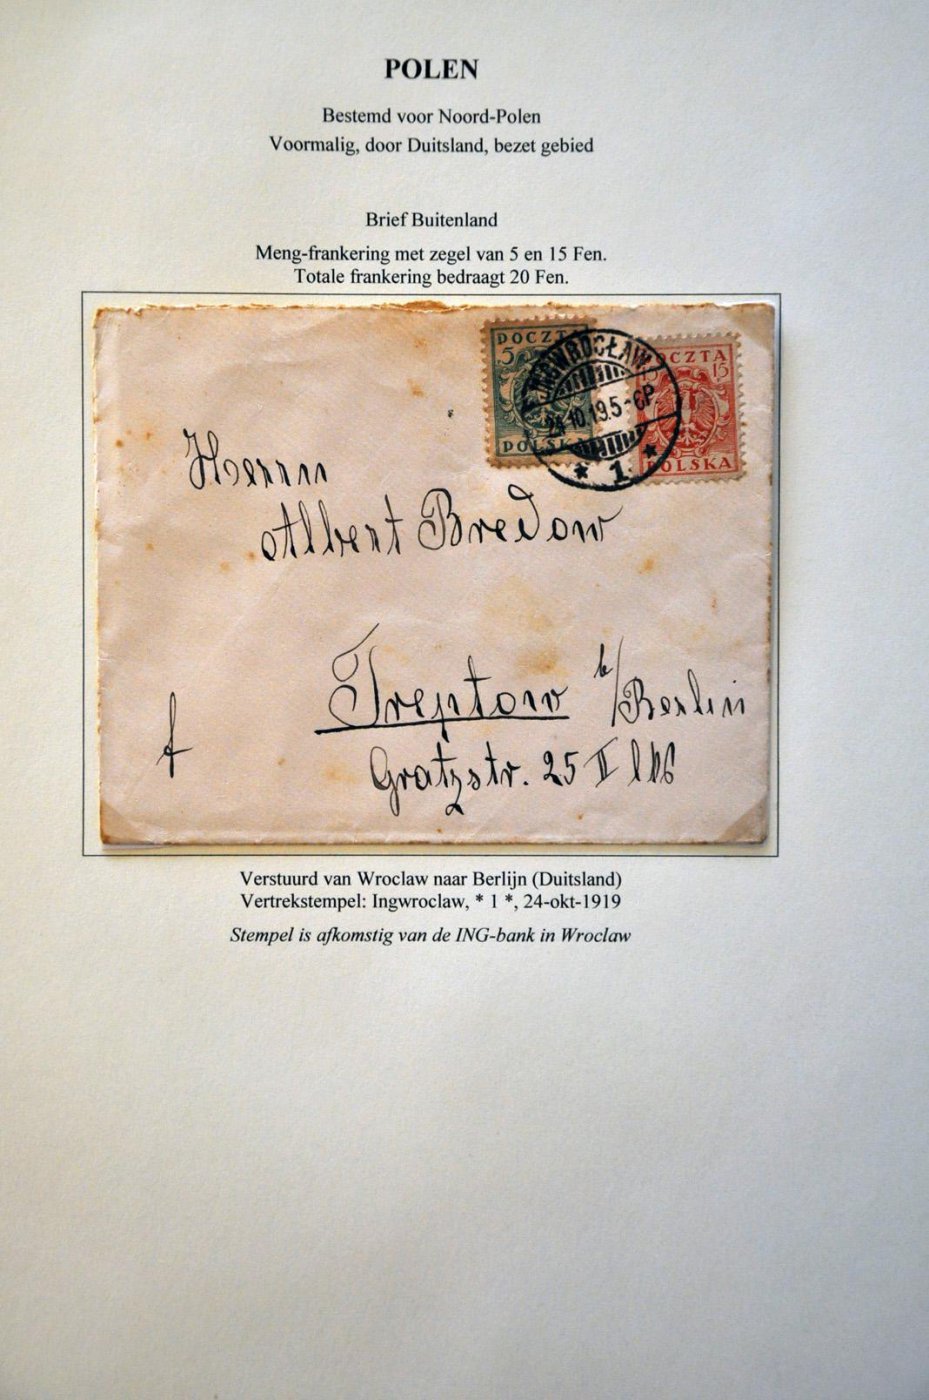 POLEN
Bestemd voor Noord-Polen
Voormalig, door Duitsland, bezet gebied
Brief Buitenland
Meng-frankering met zegel van 5 en 15 Fen.
Totale frankering bedraagt 20 Fen.
POCZTA
5
POLSKA
INOWROCŁAW
24.10.19.5-6P.
* 1 *
POCZTA
15 15
POLSKA
Herrn
Albert Bredow
Treptow b/Berlin
Gratzstr. 25 II
f
Verstuurd van Wroclaw naar Berlijn (Duitsland)
Vertrekstempel: Ingwroclaw, * 1 *, 24-okt-1919
Stempel is afkomstig van de ING-bank in Wroclaw